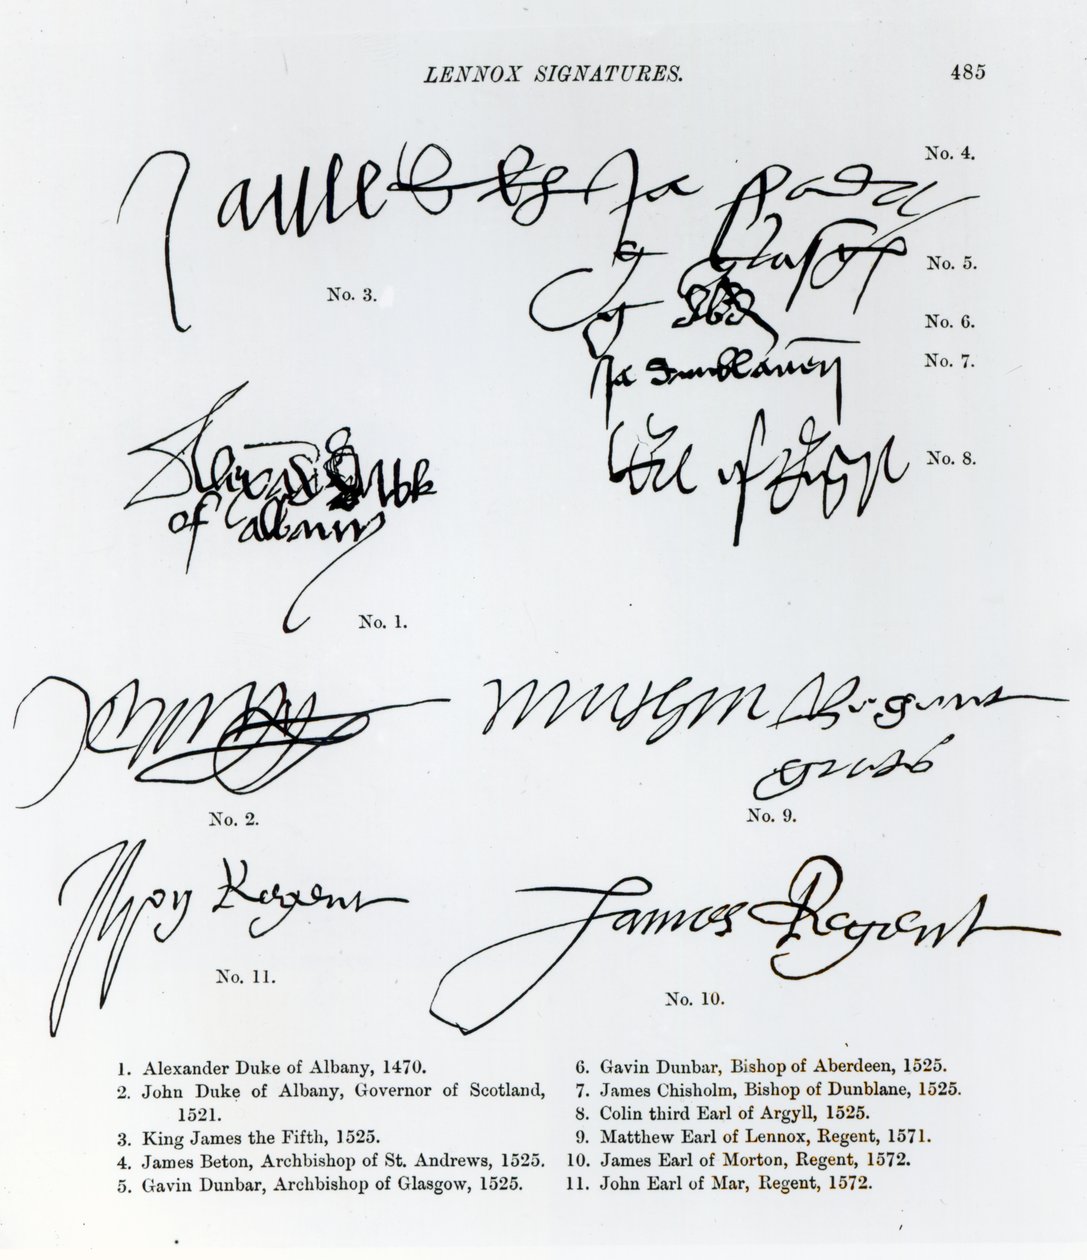 LENNOX SIGNATURES. 485
No. 4.
No. 5.
No. 3.
No. 6.
No. 7.
Ja Dunblanen
No. 8.
of Albany
No. 1.
Regent
No. 2.
No. 9.
Regent
James Regent
No. 11.
No. 10.
1. Alexander Duke of Albany, 1470.
2. John Duke of Albany, Governor of Scotland,
1521.
3. King James the Fifth, 1525.
4. James Beton, Archbishop of St. Andrews, 1525.
5. Gavin Dunbar, Archbishop of Glasgow, 1525.
6. Gavin Dunbar, Bishop of Aberdeen, 1525.
7. James Chisholm, Bishop of Dunblane, 1525.
8. Colin third Earl of Argyll, 1525.
9. Matthew Earl of Lennox, Regent, 1571.
10. James Earl of Morton, Regent, 1572.
11. John Earl of Mar, Regent, 1572.